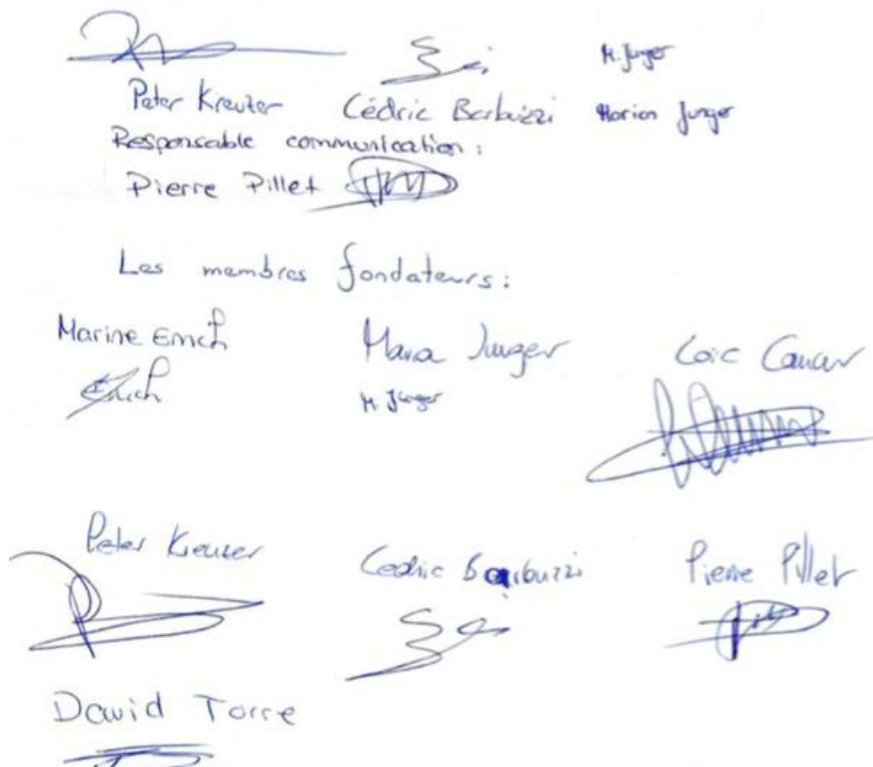 M. Junger
Peter Kreuzer Cédric Barbuzzi Marion Junger
Responsable communication :
Pierre Pillet
Les membres fondateurs :
Marine Emch Mara Junger Loïc Cancer
Emch M. Junger
Peter Kreuzer Cédric Barbuzzi Pierre Pillet
David Torre